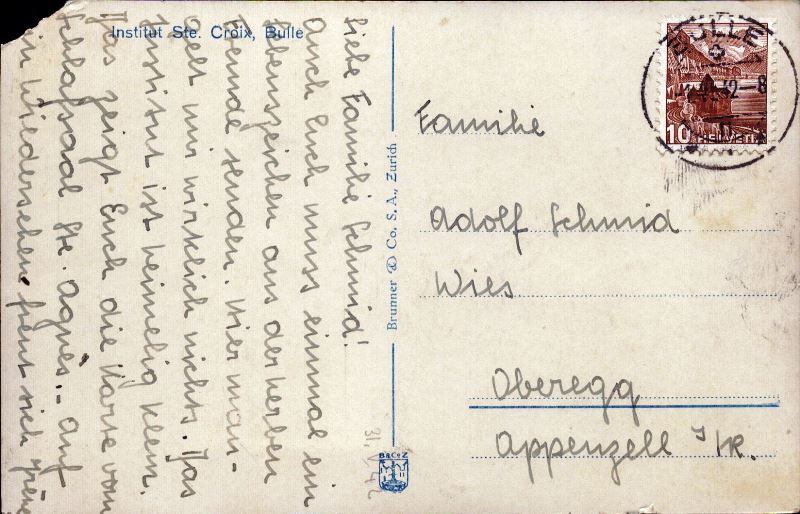 Institut Ste. Croix, Bulle
Liebe Familie Schmid!
Auch Euch muss einmal ein
Lebenszeichen aus der herben
Fremde senden. Hier man-
gelt mir wirklich nichts. Das
Institut ist heimelig klein.
Das zeigt Euch die Karte vom
Schlafsaal Ste. Agnès. – Auf
ein Wiedersehen freut sich
31. V. 42
Brunner & Co. S. A., Zürich
B&CoZ
BULLE
42-8
10 HELVETIA
Familie
Adolf Schmid
Wies
Oberegg
Appenzell I/R.